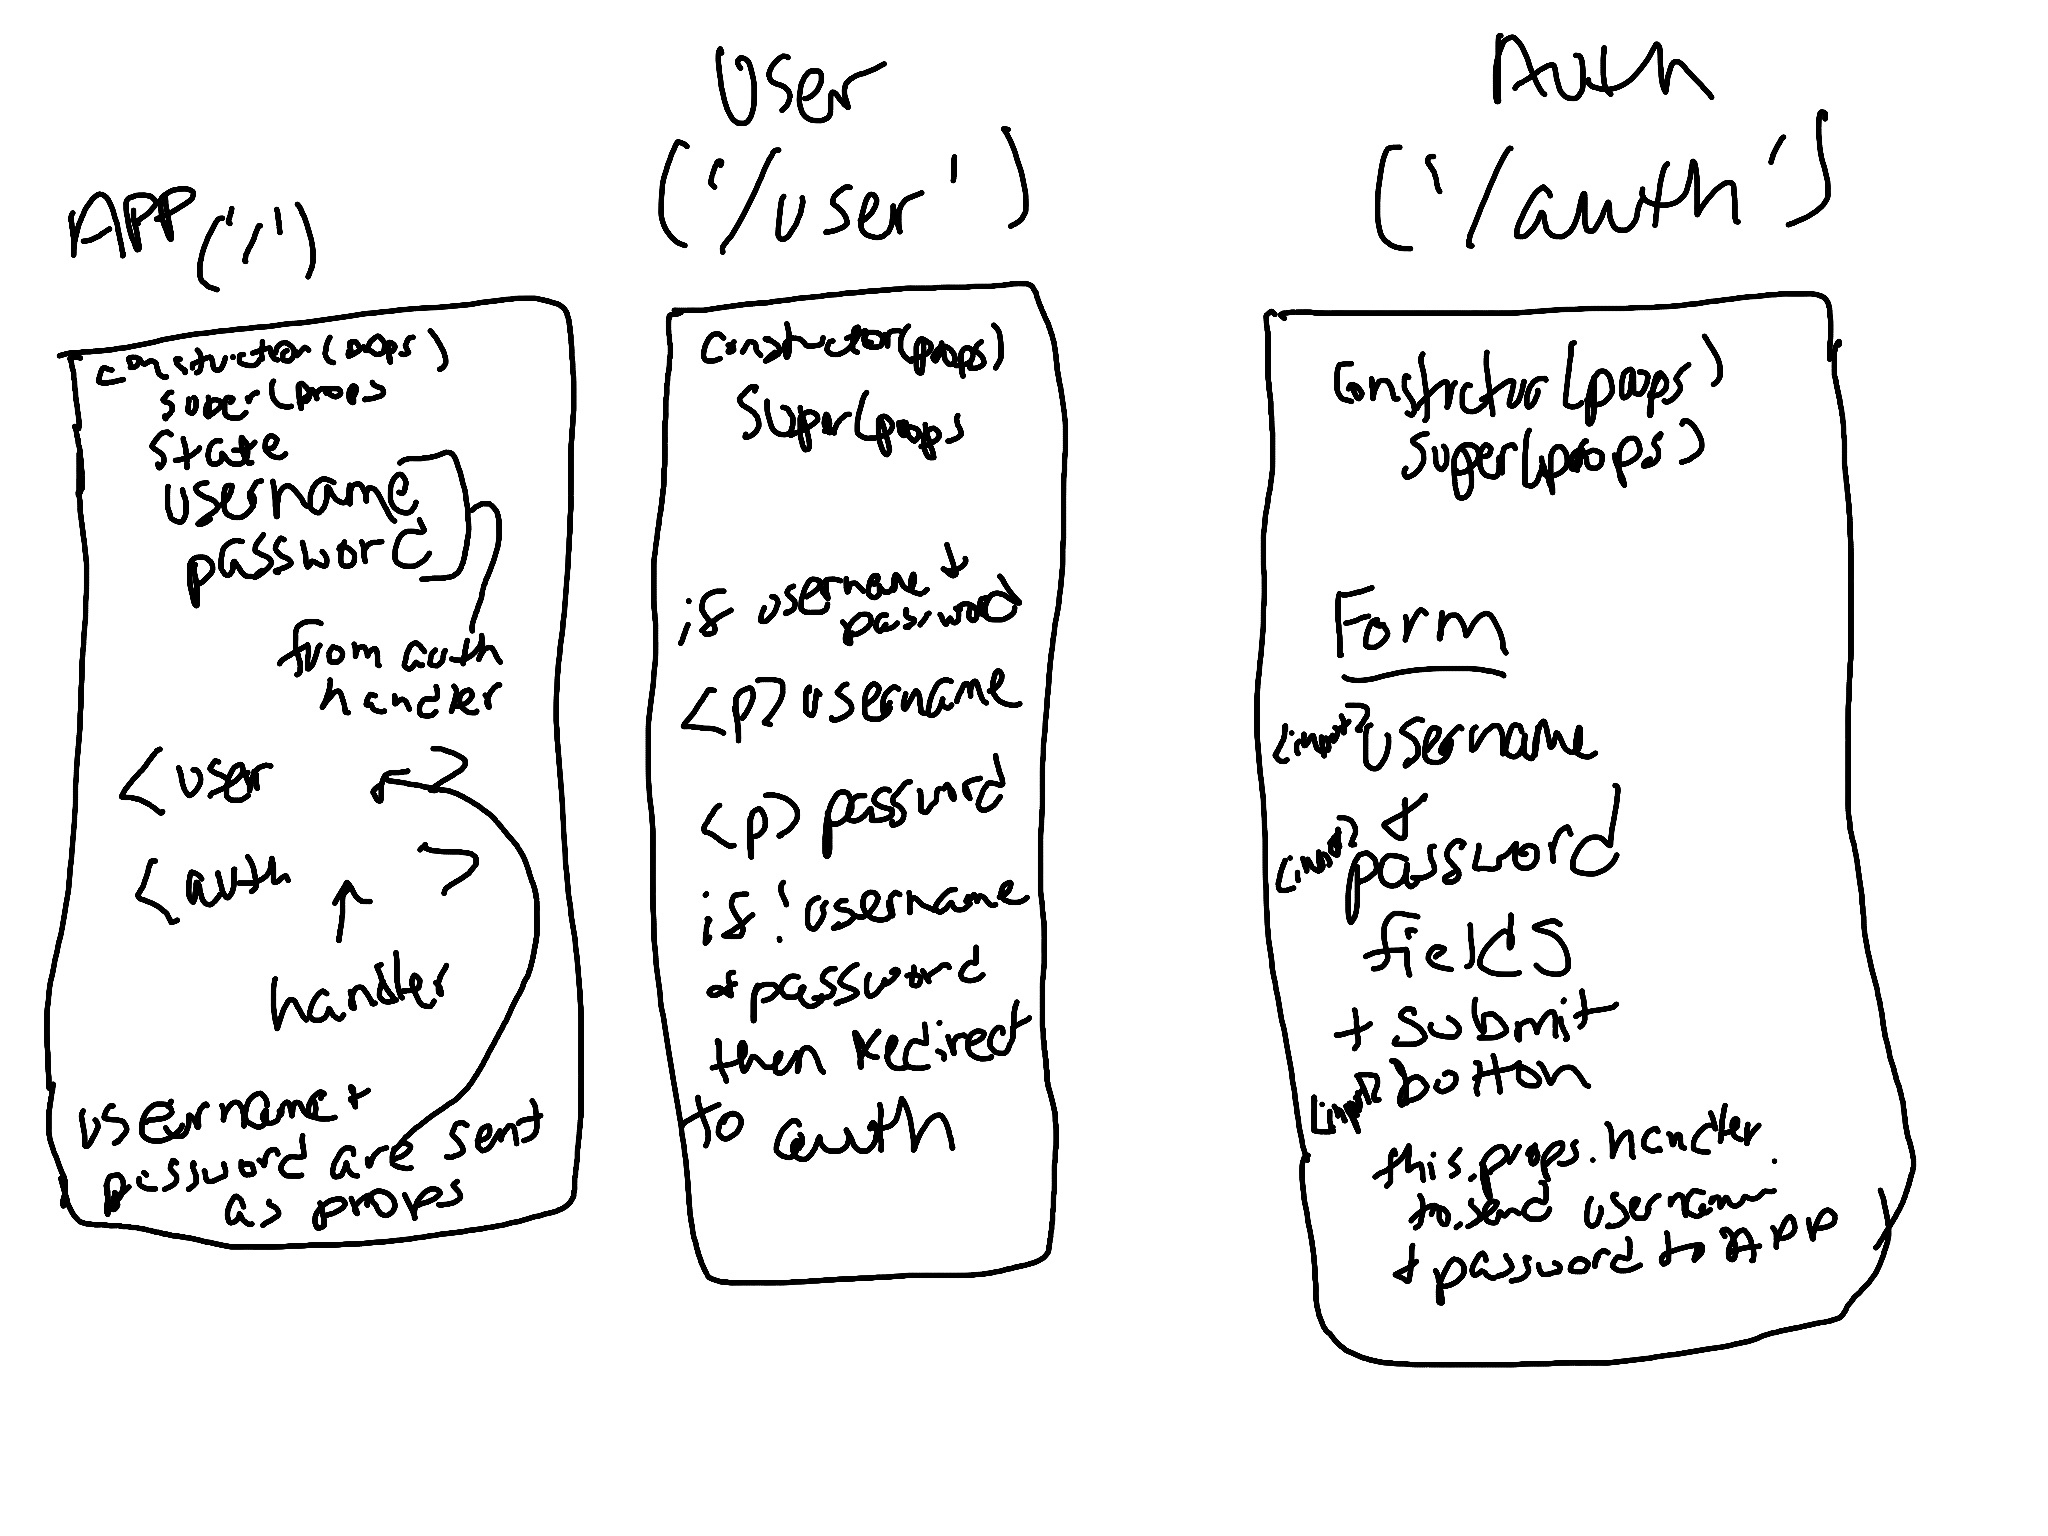 APP ('/')
construction(props)
super(props
state
username
password
from auth
handler
<user >
<auth >
handler
username +
password are sent
as props
User
('/user')
constructor(props)
super(props
if username +
password
<p> username
<p> password
if !username
or password
then redirect
to auth
Auth
('/auth')
constructor(props)
super(props)
Form
<input> username
+
<input> password
fields
+ submit
<input> button
this.props.handler
to send username
+ password to APP)